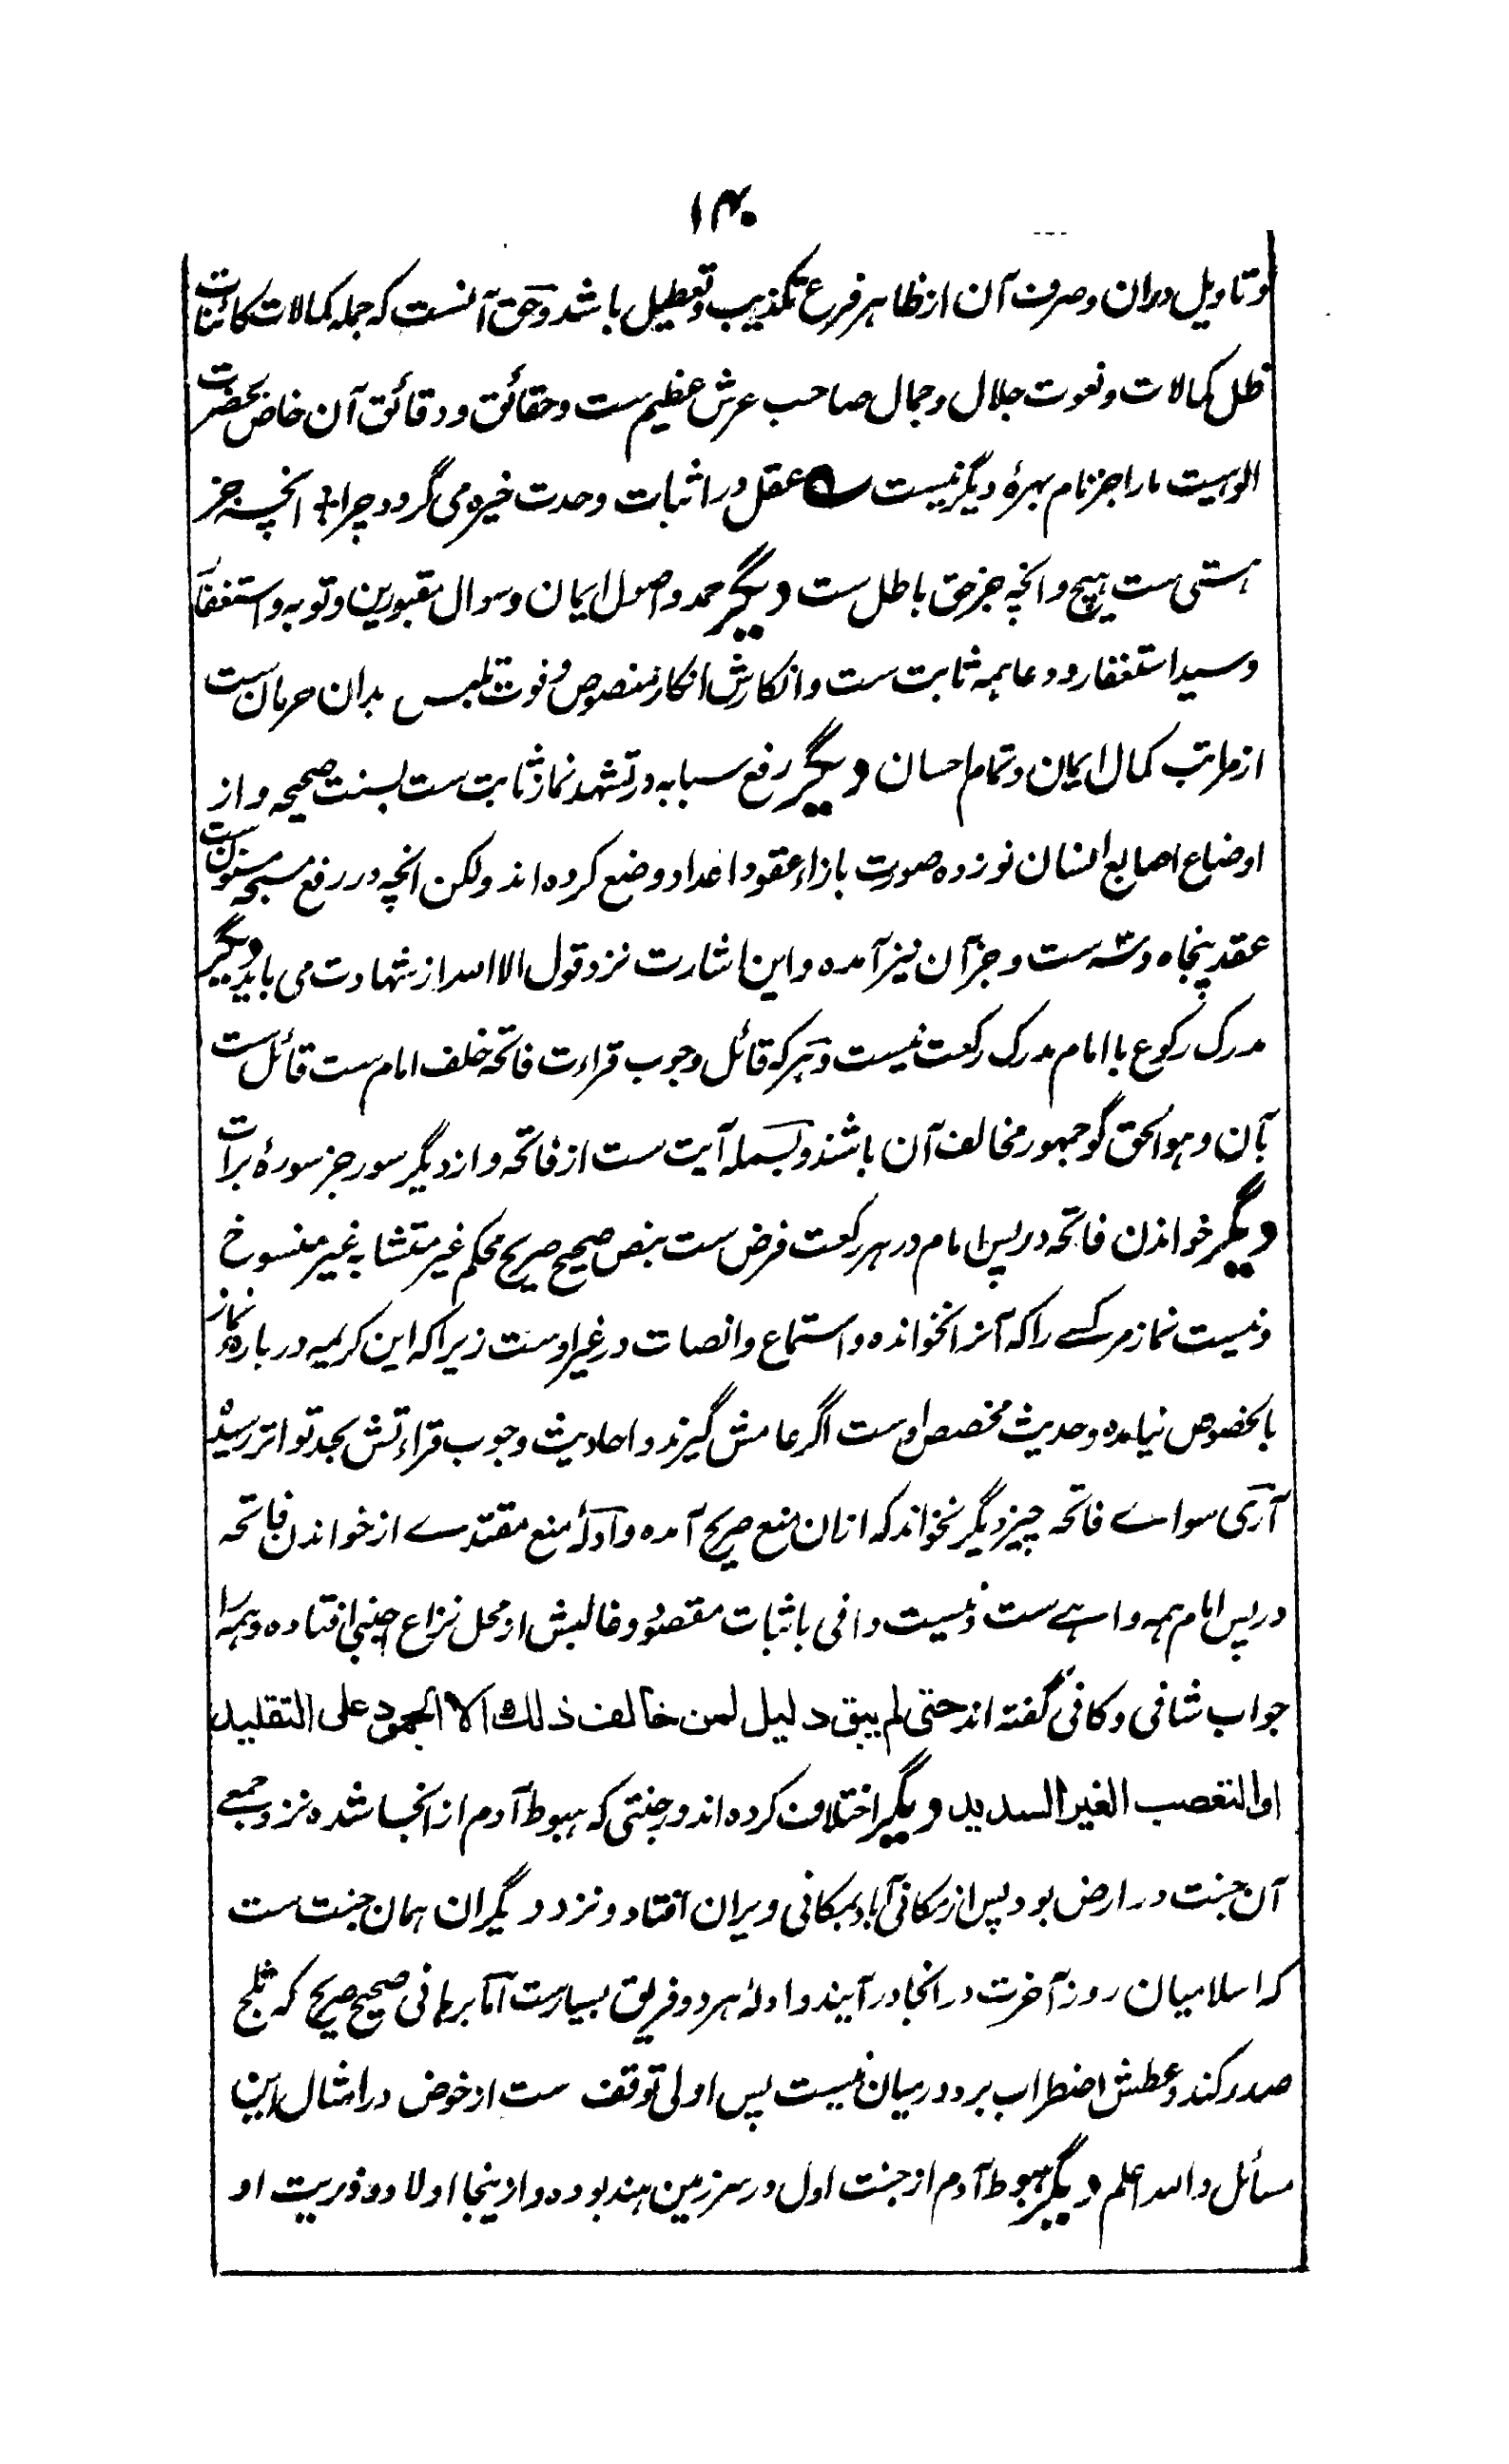 ۱۴۰
وتاویل دران وصرف آن از ظاهر فرع تکذیب وتعطیل باشد وحق آنست که جمله کمالات کائنات
ظل کمالات ونعوت جلال وجمال صاحب عرش عظیم ست وحقائق ودقائق آن خاص بحضرت
الوهیت مارا جز نام بهرهٔ دیگر نیست ؎ عقل در اثبات وحدت خیره می گردد چرا + انچه جز
هستی ست هیچ وانچه جز حق باطل ست دیگر حمد واصول ایمان وسوال مقبورین وتوبه واستغفار
وسید استغفار ودعا همه ثابت ست وانکارش انکار منصوص وفوت تلبس بدان حرمان ست
از مراتب کمال ایمان وتمام احسان دیگر رفع سبابه در تشهد نماز ثابت ست بسنت صحیحه واز
اوضاع اصابع انسان نوزده صورت بازاء عقود اعداد وضع کرده اند ولکن انچه در رفع مسبحه مسنون ست
عقد پنجاه وسه ست وجز آن نیز آمده واین اشارت نزد قول الا الله از شهادت می باید دیگر
مدرک رکوع با امام مدرک رکعت نیست وهرکه قائل وجوب قراءت فاتحه خلف امام ست قائل ست
بآن وهو الحق گو جمهور مخالف آن باشند وبسمله آیت ست از فاتحه واز دیگر سور جز سورهٔ برات
دیگر خواندن فاتحه در پس امام در هر رکعت فرض ست بنص صحیح صریح محکم غیر متشابه غیر منسوخ
ونیست نماز مر کسے را که آنرا نخوانده واستماع وانصات در غیر اوست زیراکه این کریمه در بارهٔ نماز
بالخصوص نیامده وحدیث مخصص اوست اگر عامش گیرند واحادیث وجوب قراءتش بحد تواتر رسیده
آری سواے فاتحه چیز دیگر نخواند که ازان منع صریح آمده وادلهٔ منع مقتدے از خواندن فاتحه
در پس امام همه واهے ست ونیست وافی باثبات مقصود وغالبش از محل نزاع اجنبی افتاده وهمه را
جواب شافی وکافی گفته اند حتی لم یبق دلیل لمن خالف ذلك الا الجمود علی التقلید
او التعصب الغیر السدید دیگر اختلاف کرده اند در جنتی که هبوط آدم از انجا شده نزد جمعے
آن جنت در ارض بود پس از مکانی آباد بمکانی ویران افتاد ونزد دیگران همان جنت ست
که اسلامیان روز آخرت در انجا در آیند وادلهٔ هر دو فریق بسیارست اما برهانی صحیح صریح که ثلج
صدر کند وعطش اضطراب برد درمیان نیست پس اولی توقف ست از خوض در امثال این
مسائل والله اعلم دیگر هبوط آدم از جنت اول در سرزمین هند بوده واز ینجا اولاد وذریت او